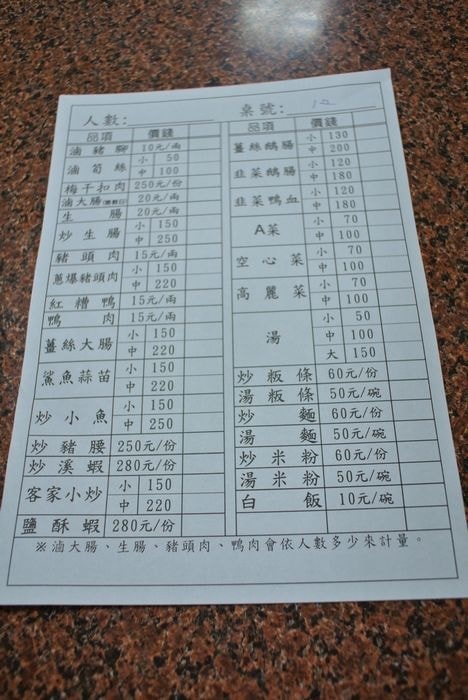 人數:
桌號:
品項 價錢
滷豬腳 10元/兩
滷筍絲 小 50
中 100
梅干扣肉 250元/份
滷大腸 20元/兩
生腸 20元/兩
炒生腸 小 150
中 250
豬頭肉 15元/兩
蔥爆豬頭肉 小 150
中 220
紅糟鴨 15元/兩
鴨肉 15元/兩
薑絲大腸 小 150
中 220
鯊魚蒜苗 小 150
中 220
炒小魚 小 150
中 250
炒豬腰 250元/份
炒溪蝦 280元/份
客家小炒 小 150
中 220
鹽酥蝦 280元/份
品項 價錢
薑絲鵝腸 小 130
中 200
韭菜鵝腸 小 120
中 180
韭菜鴨血 小 120
中 180
A菜 小 70
中 100
空心菜 小 70
中 100
高麗菜 小 70
中 100
湯 小 50
中 100
大 150
炒粄條 60元/份
湯粄條 50元/碗
炒麵 60元/份
湯麵 50元/碗
炒米粉 60元/份
湯米粉 50元/碗
白飯 10元/碗
※滷大腸、生腸、豬頭肉、鴨肉會依人數多少來計量。